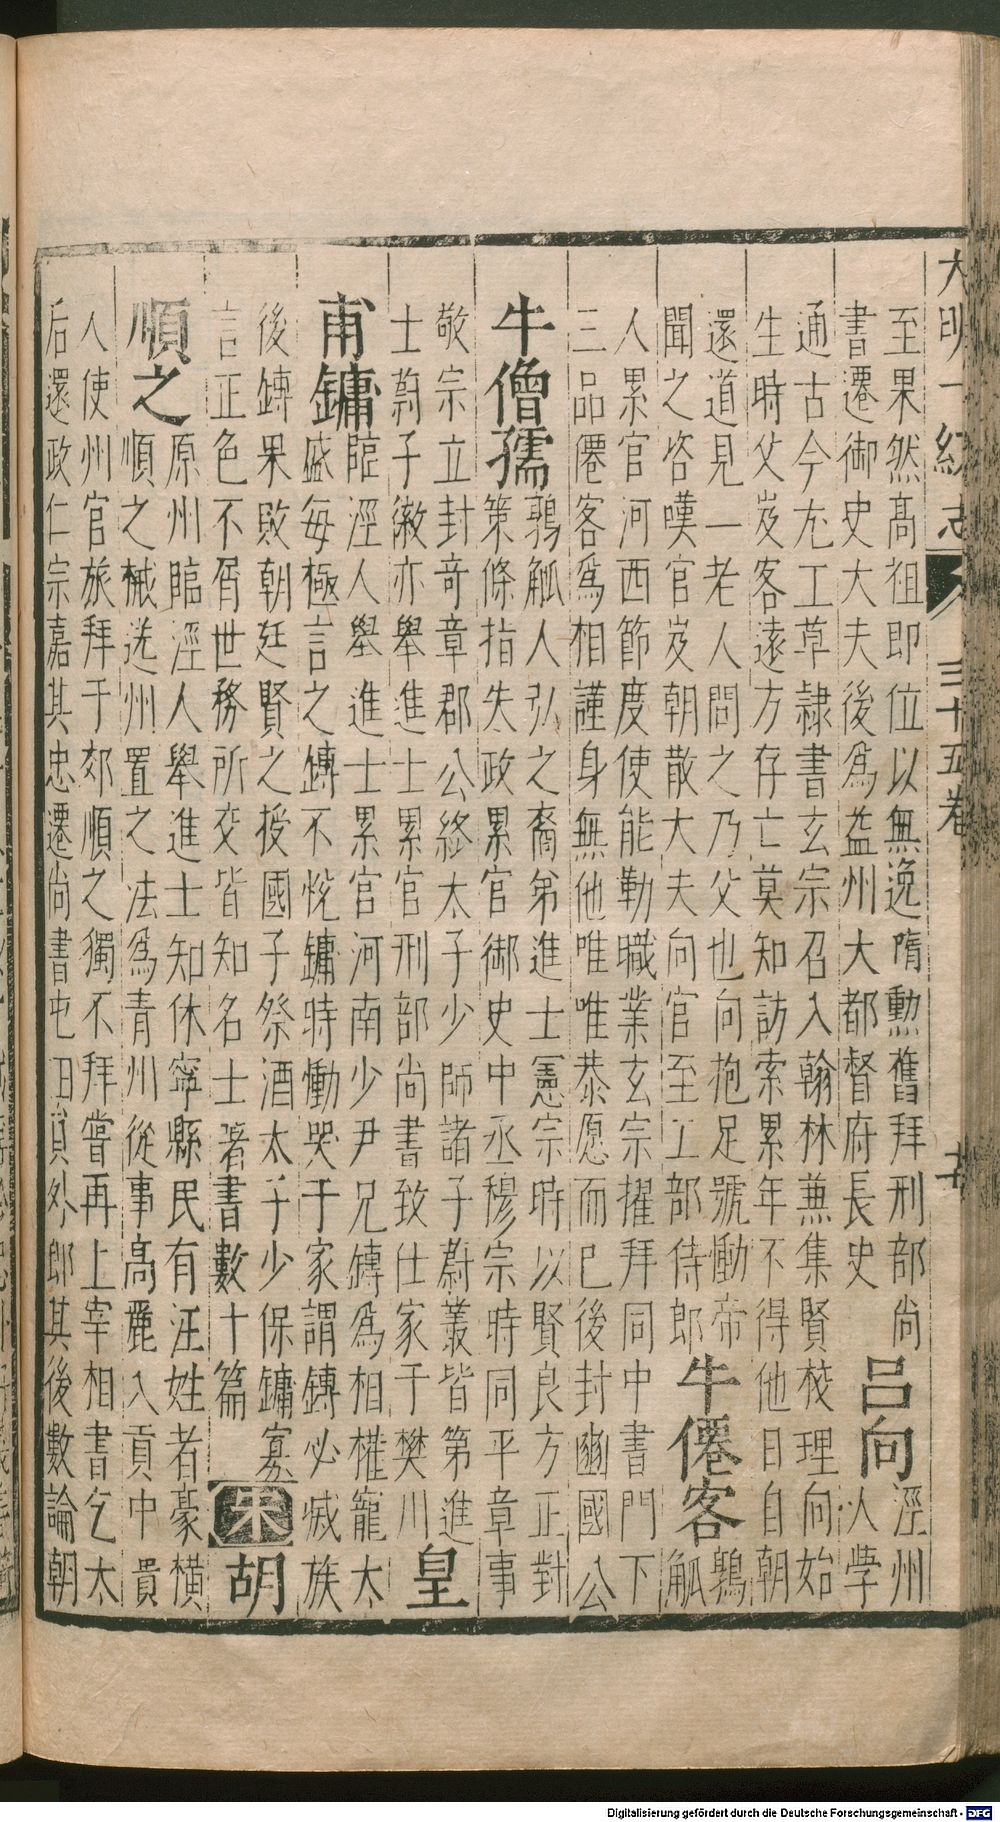 大明一統志 三十五卷 廿
至果然高祖即位以無逸隋勳舊拜刑部尚
書遷御史大夫後爲益州大都督府長史
呂向 涇州
人學
通古今尤工草隷書玄宗召入翰林兼集賢校理向始
生時父岌客遠方存亡莫知訪索累年不得他日自朝
還道見一老人問之乃父也向抱足號慟帝
聞之咨嘆官岌朝散大夫向官至工部侍郎
牛僊客 鶉
觚
人累官河西節度使能勤職業玄宗擢拜同中書門下
三品僊客爲相謹身無他唯唯恭愿而已後封豳國公
牛僧孺 鶉觚人弘之裔弟進士憲宗時以賢良方正對
策條指失政累官御史中丞穆宗時同平章事
敬宗立封奇章郡公終太子少師諸子蔚叢皆第進
士蔚子徽亦舉進士累官刑部尚書致仕家于樊川
皇
甫鏞 臨涇人舉進士累官河南少尹兄鎛爲相權寵太
盛每極言之鎛不悅鏞時慟哭于家謂鎛必滅族
後鎛果敗朝廷賢之授國子祭酒太子少保鏞寡
言正色不屑世務所交皆知名士著書數十篇
宋 胡
順之 原州臨涇人舉進士知休寧縣民有汪姓者豪橫
順之械送州置之法爲青州從事高麗入貢中貴
人使州官旅拜于郊順之獨不拜嘗再上宰相書乞太
后還政仁宗嘉其忠遷尚書屯田員外郎其後數論朝
Digitalisierung gefördert durch die Deutsche Forschungsgemeinschaft - DFG